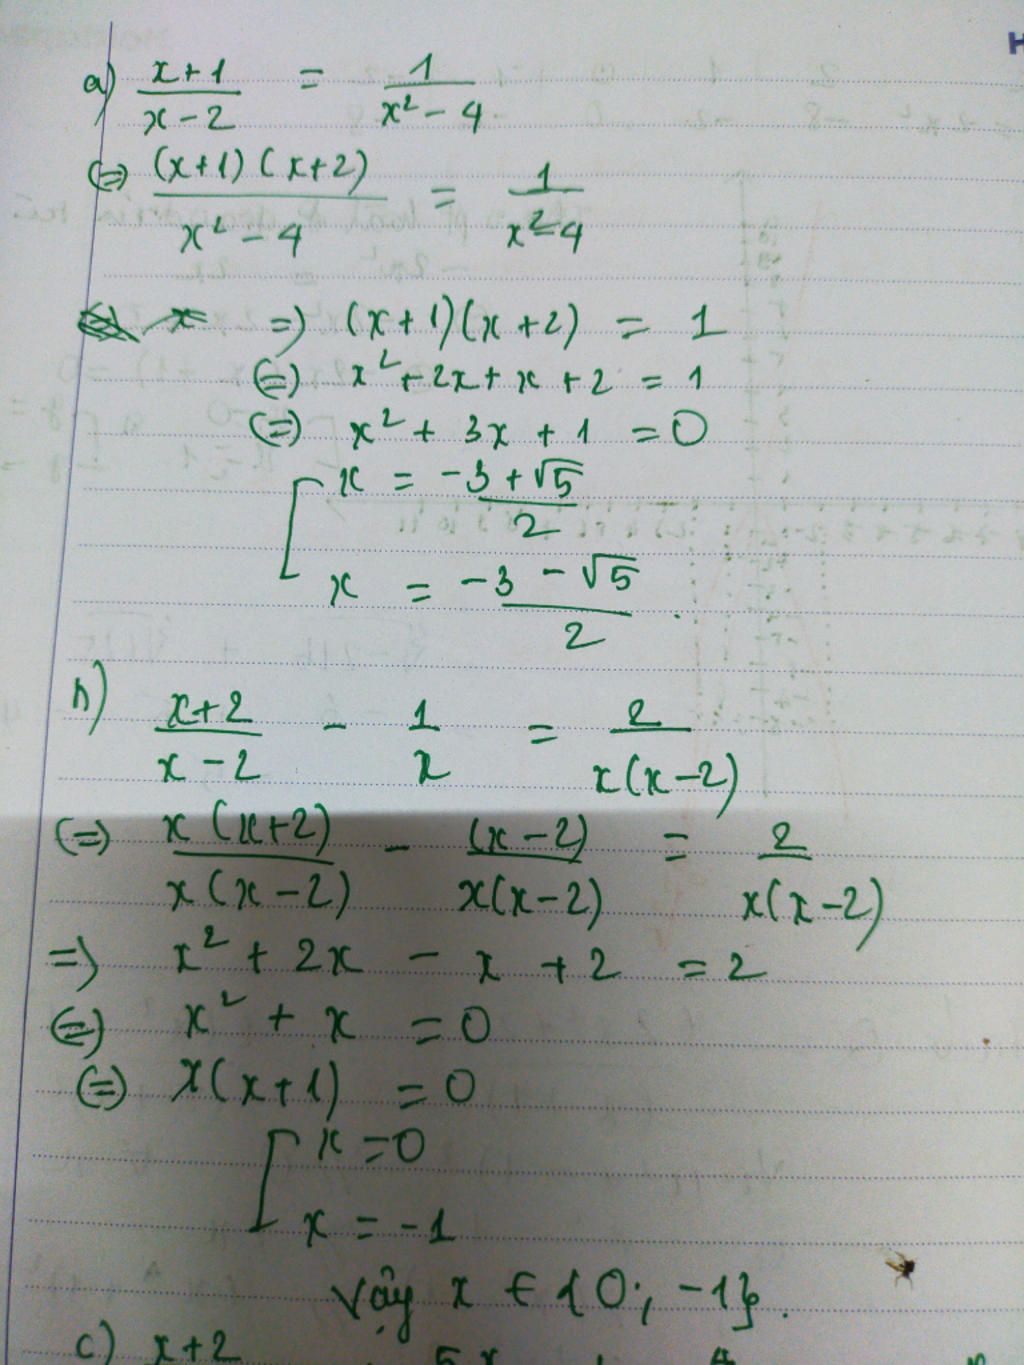 a) \frac{x+1}{x-2} = \frac{1}{x²-4}
(=) \frac{(x+1)(x+2)}{x²-4} = \frac{1}{x²-4}
=) (x+1)(x+2) = 1
(=) x² + 2x + x + 2 = 1
(=) x² + 3x + 1 = 0
[ x = \frac{-3+√5}{2}
x = \frac{-3-√5}{2} .
b) \frac{x+2}{x-2} - \frac{1}{x} = \frac{2}{x(x-2)}
(=) \frac{x(x+2)}{x(x-2)} - \frac{(x-2)}{x(x-2)} = \frac{2}{x(x-2)}
=) x² + 2x - x + 2 = 2
(=) x² + x = 0
(=) x(x+1) = 0
[ x = 0
x = -1
Vậy x ∈ {0; -1}.
c) x+2